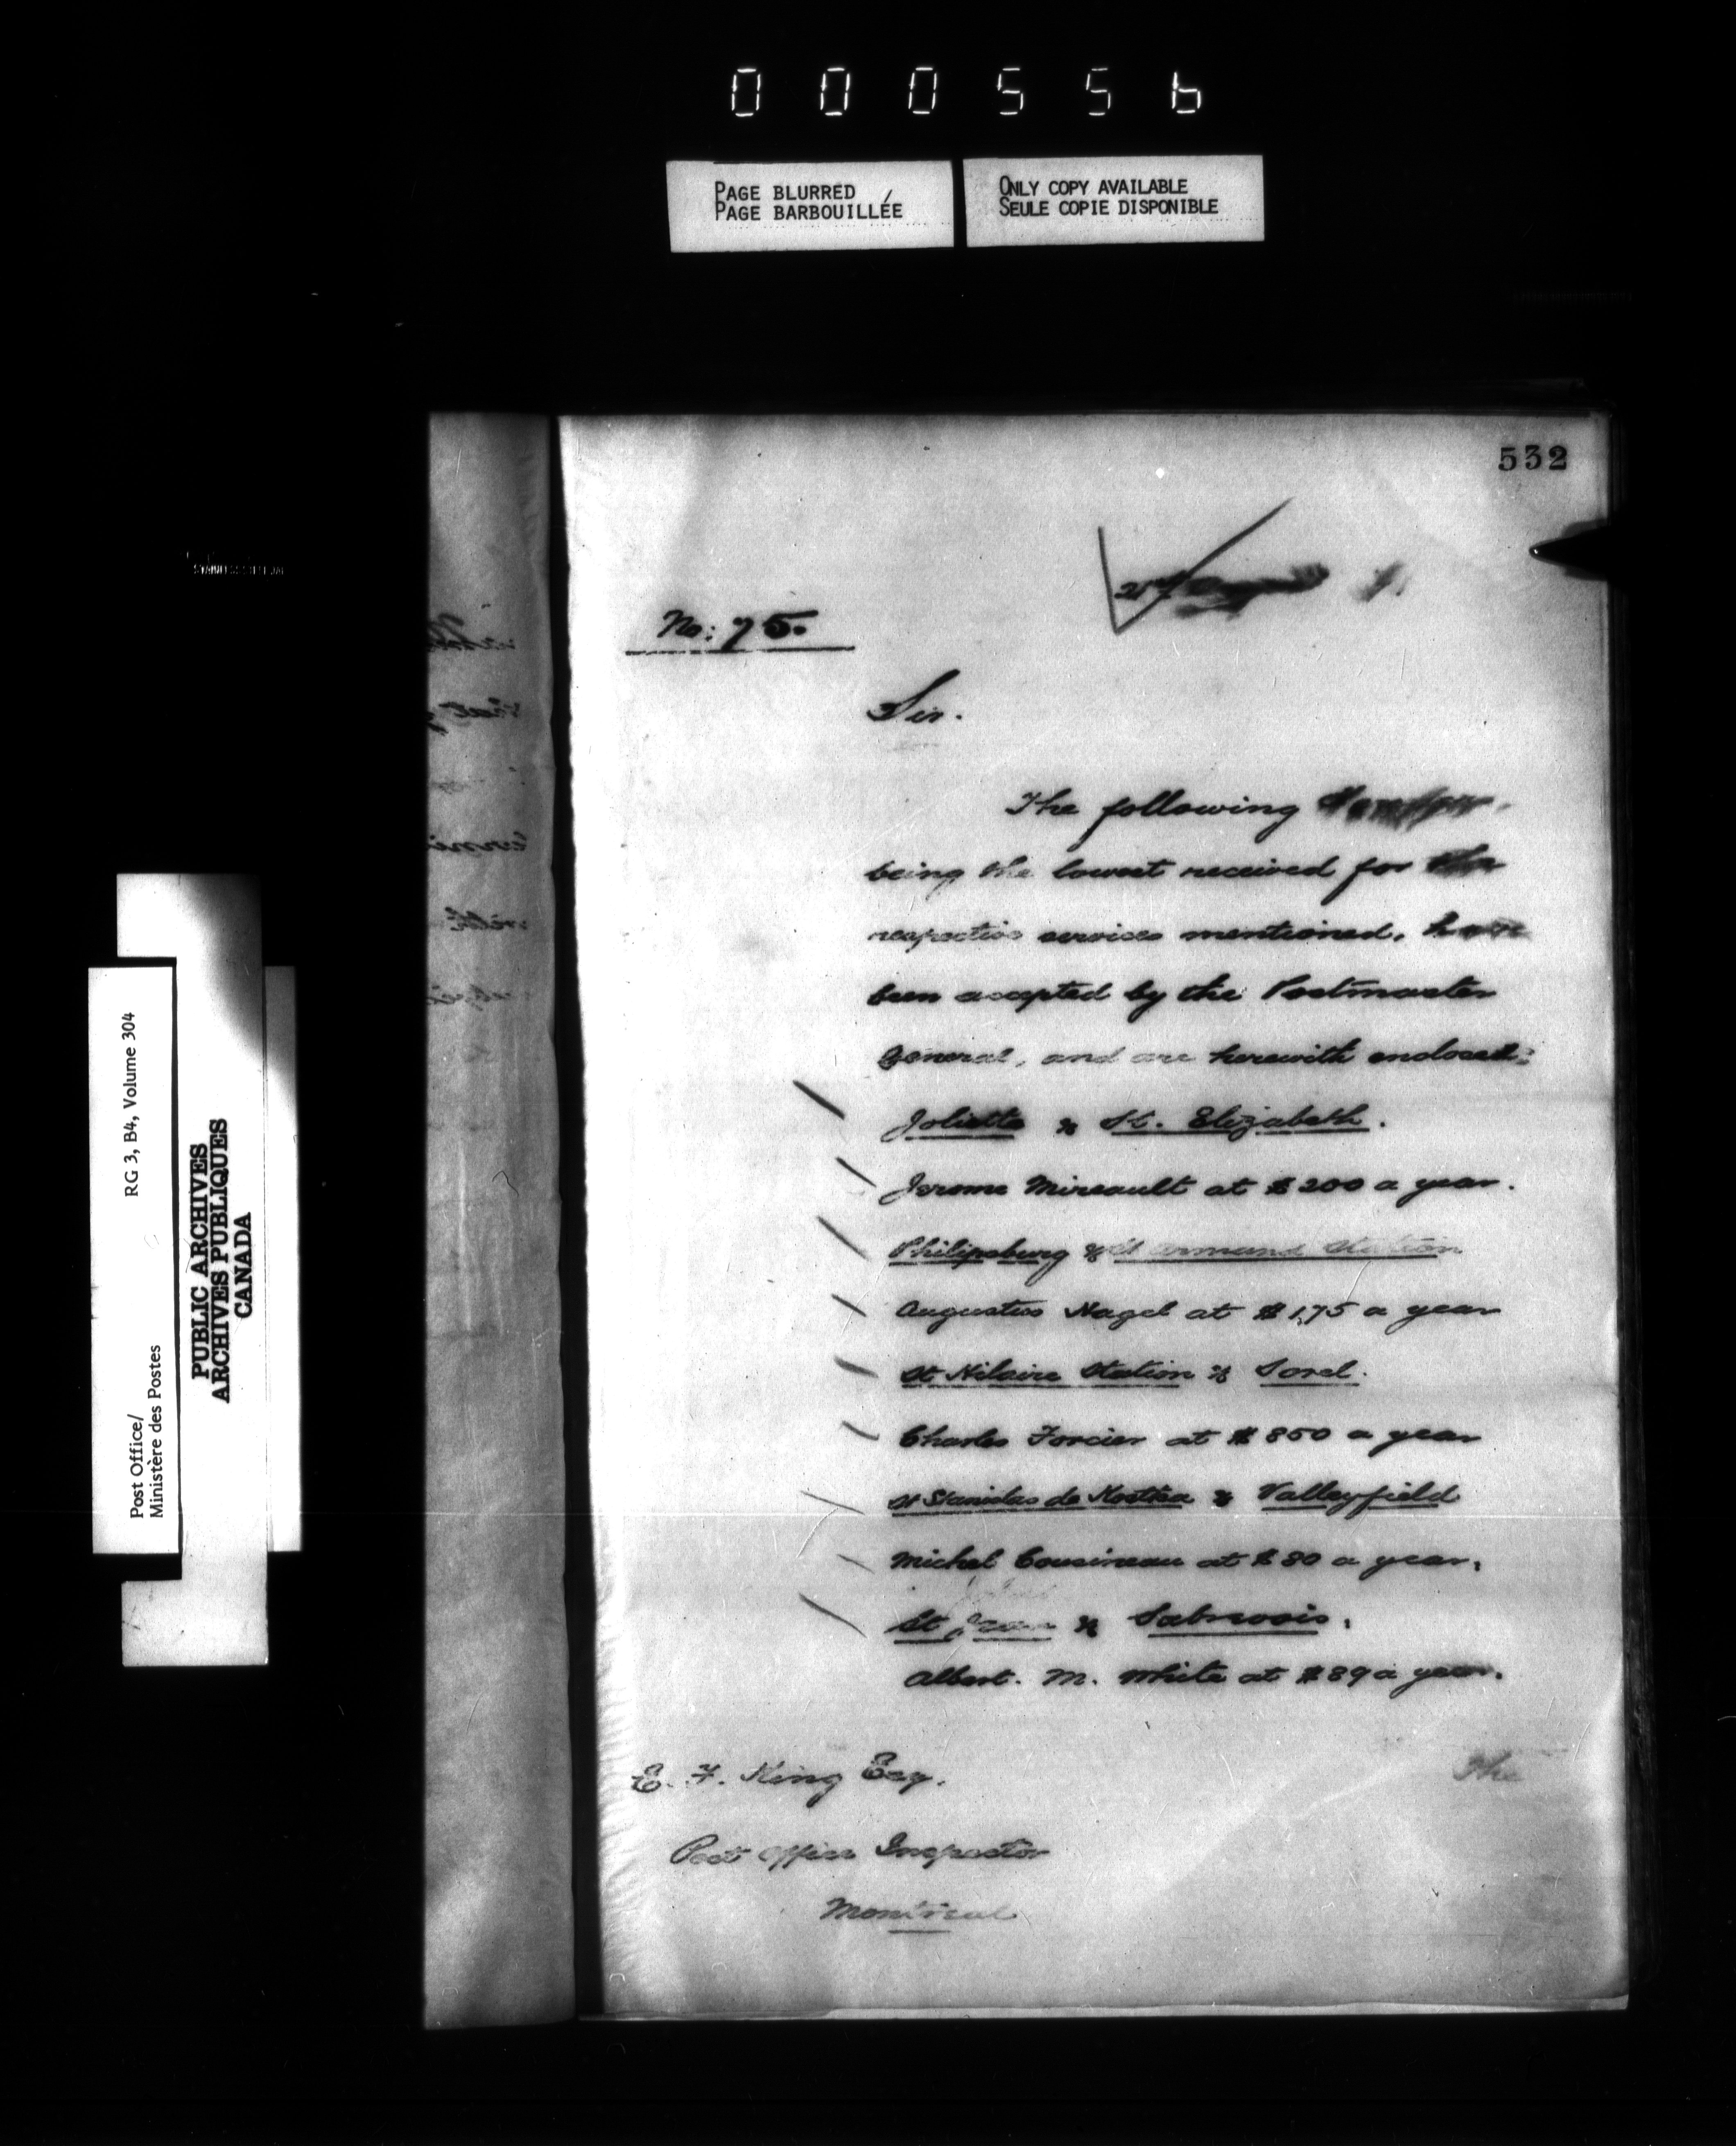 000556
PAGE BLURRED
PAGE BARBOUILLÉE
ONLY COPY AVAILABLE
SEULE COPIE DISPONIBLE
532
No: 75.
Sir.
The following
being the lowest received for the
respective services mentioned, have
been accepted by the Postmaster
General, and are herewith enclosed:
Joliette & St. Elizabeth.
Jerome Mireault at $200 a year.
Philipsburg & St Armand Station
Augustus Nagel at $175 a year
St Hilaire Station & Sorel.
Charles Forcier at $850 a year
St Stanislas de Kostka & Valleyfield
Michel Cousineau at $80 a year,
St Jean & Sabrevois.
Albert. M. White at $89 a year.
The
E. F. King Esq.
Post Office Inspector
Montreal
Post Office/
Ministère des Postes
RG 3, B4, Volume 304
PUBLIC ARCHIVES
ARCHIVES PUBLIQUES
CANADA